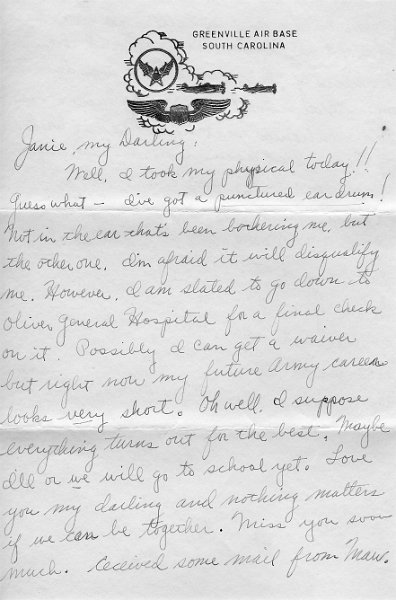 GREENVILLE AIR BASE
SOUTH CAROLINA
Janie, my Darling:
Well, I took my physical today!!
Guess what — I've got a punctured ear drum!
Not in the ear that's been bothering me, but
the other one. I'm afraid it will disqualify
me. However, I am slated to go down to
Oliver General Hospital for a final check
on it. Possibly I can get a waiver
but right now my future Army career
looks very short. Oh well, I suppose
everything turns out for the best. Maybe
I'll or we will go to school yet. Love
you my darling and nothing matters
if we can be together. Miss you soon
much. Received some mail from Maw.